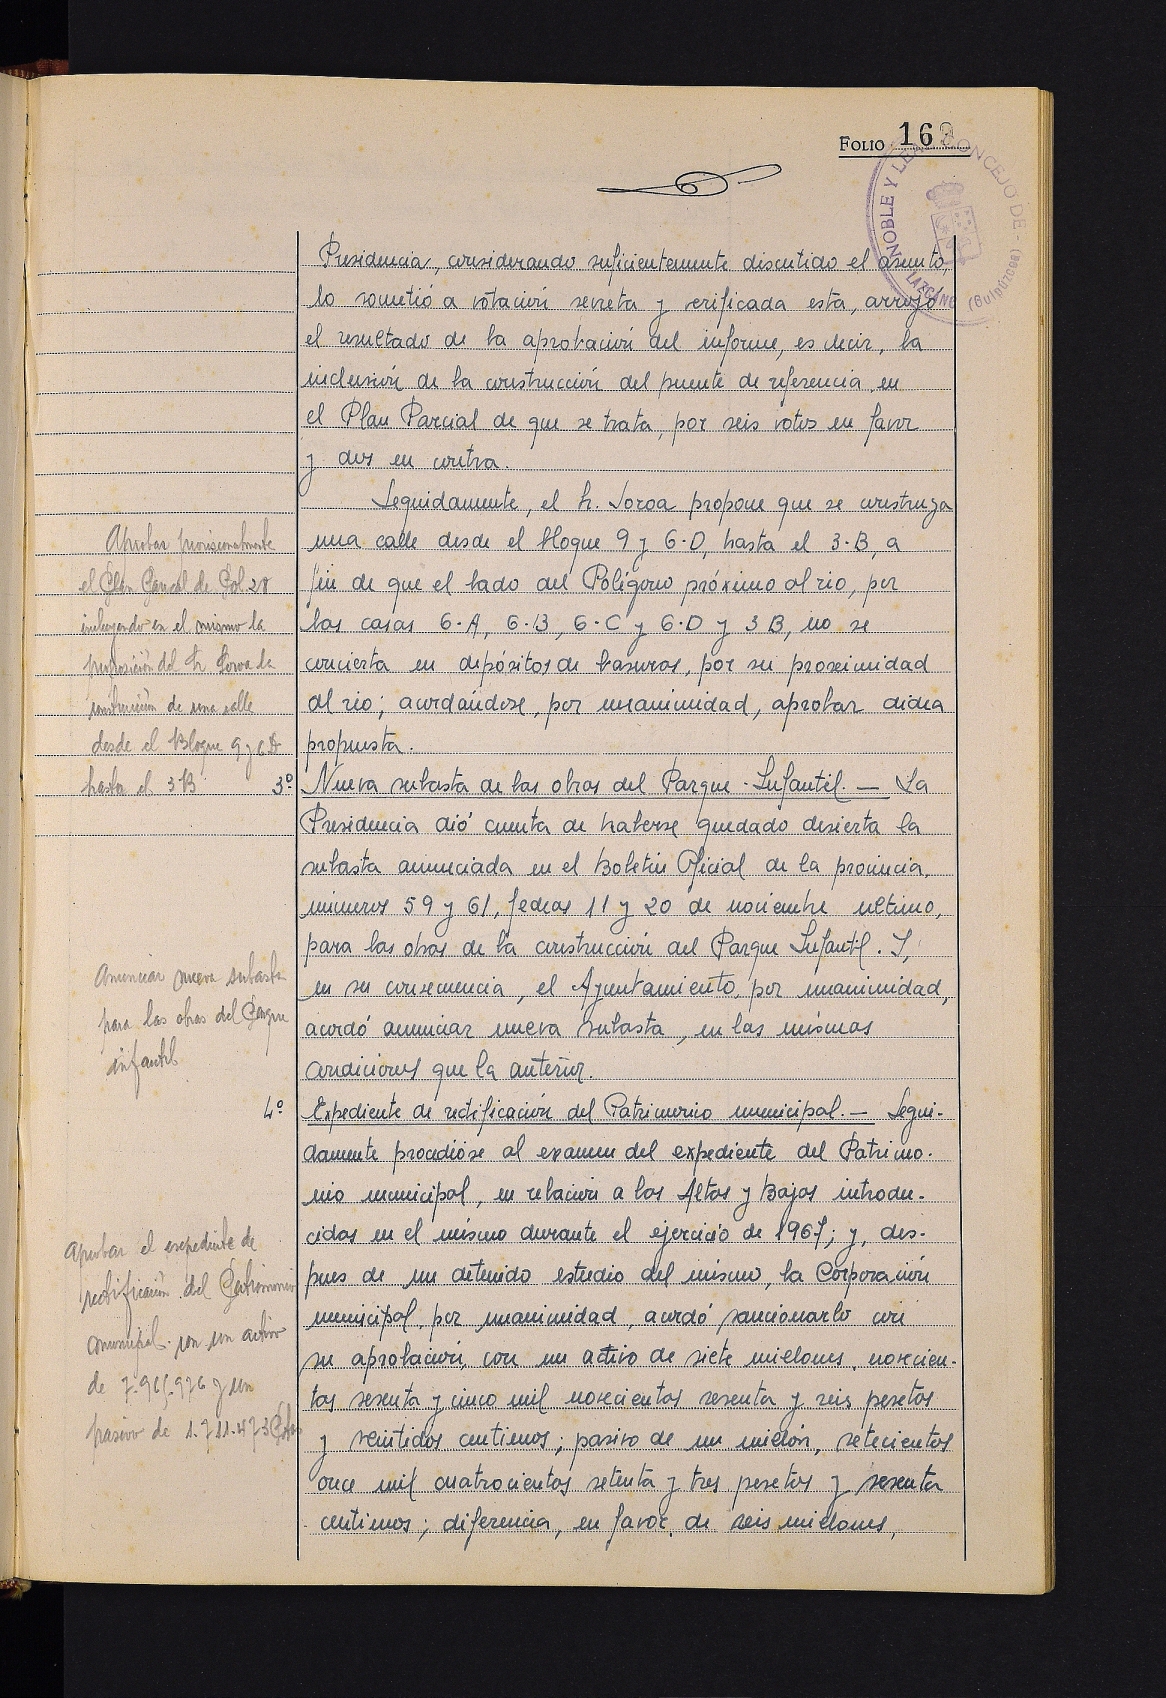 FOLIO 162
NOBLE Y LEAL CONCEJO DE LAZCANO (Guipúzcoa)
Presidencia, considerando suficientemente discutido el asunto,
lo sometió a votación secreta y verificada esta, arrojó
el resultado de la aprobación del informe, es decir, la
inclusión de la construcción del puente de referencia en
el Plan Parcial de que se trata, por seis votos en favor
y dos en contra.
Seguidamente, el Sr. Soroa propone que se construya
una calle desde el bloque 9 y 6-D, hasta el 3-B, a
fin de que el lado del Polígono próximo al rio, por
las casas 6-A, 6-B, 6-C y 6-D y 3 B, no se
convierta en depósitos de basuras, por su proximidad
al rio; acordándose, por unanimidad, aprobar dicha
propuesta.
Aprobar provisionalmente
el Plan Parcial de Pol. 28
incluyendo en el mismo la
proposición del Sr. Soroa la
construcción de una calle
desde el Bloque 9 y 6 D
hasta el 3 B
3º Nueva subasta de las obras del Parque-Infantil. — La
Presidencia dió cuenta de haberse quedado desierta la
subasta anunciada en el Boletín Oficial de la provincia,
números 59 y 61, fechas 11 y 20 de noviembre último,
para las obras de la construcción del Parque Infantil. Y,
en su consecuencia, el Ayuntamiento, por unanimidad,
acordó anunciar nueva subasta, en las mismas
condiciones que la anterior.
Anunciar nueva subasta
para las obras del Parque
infantil
4º Expediente de rectificación del Patrimonio municipal. — Segui-
damente procedióse al examen del expediente del Patrimo-
nio municipal, en relación a las Altas y Bajas introdu-
cidas en el mismo durante el ejercicio de 1967; y, des-
pues de un detenido estudio del mismo, la Corporación
municipal, por unanimidad, acordó sancionarlo con
su aprobación, con un activo de siete millones, novecien-
tas sesenta y cinco mil novecientas sesenta y seis pesetas
y veintidos centimos; pasivo de un millón, setecientos
once mil cuatrocientas setenta y tres pesetas y sesenta
centimos; diferencia, en favor, de seis millones,
Aprobar el expediente de
rectificación del Patrimonio
municipal con un activo
de 7.965.976 y un
pasivo de 1.711.473 Ptas